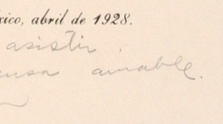 xico, abril de 1928.
asistir.
cusa amable.